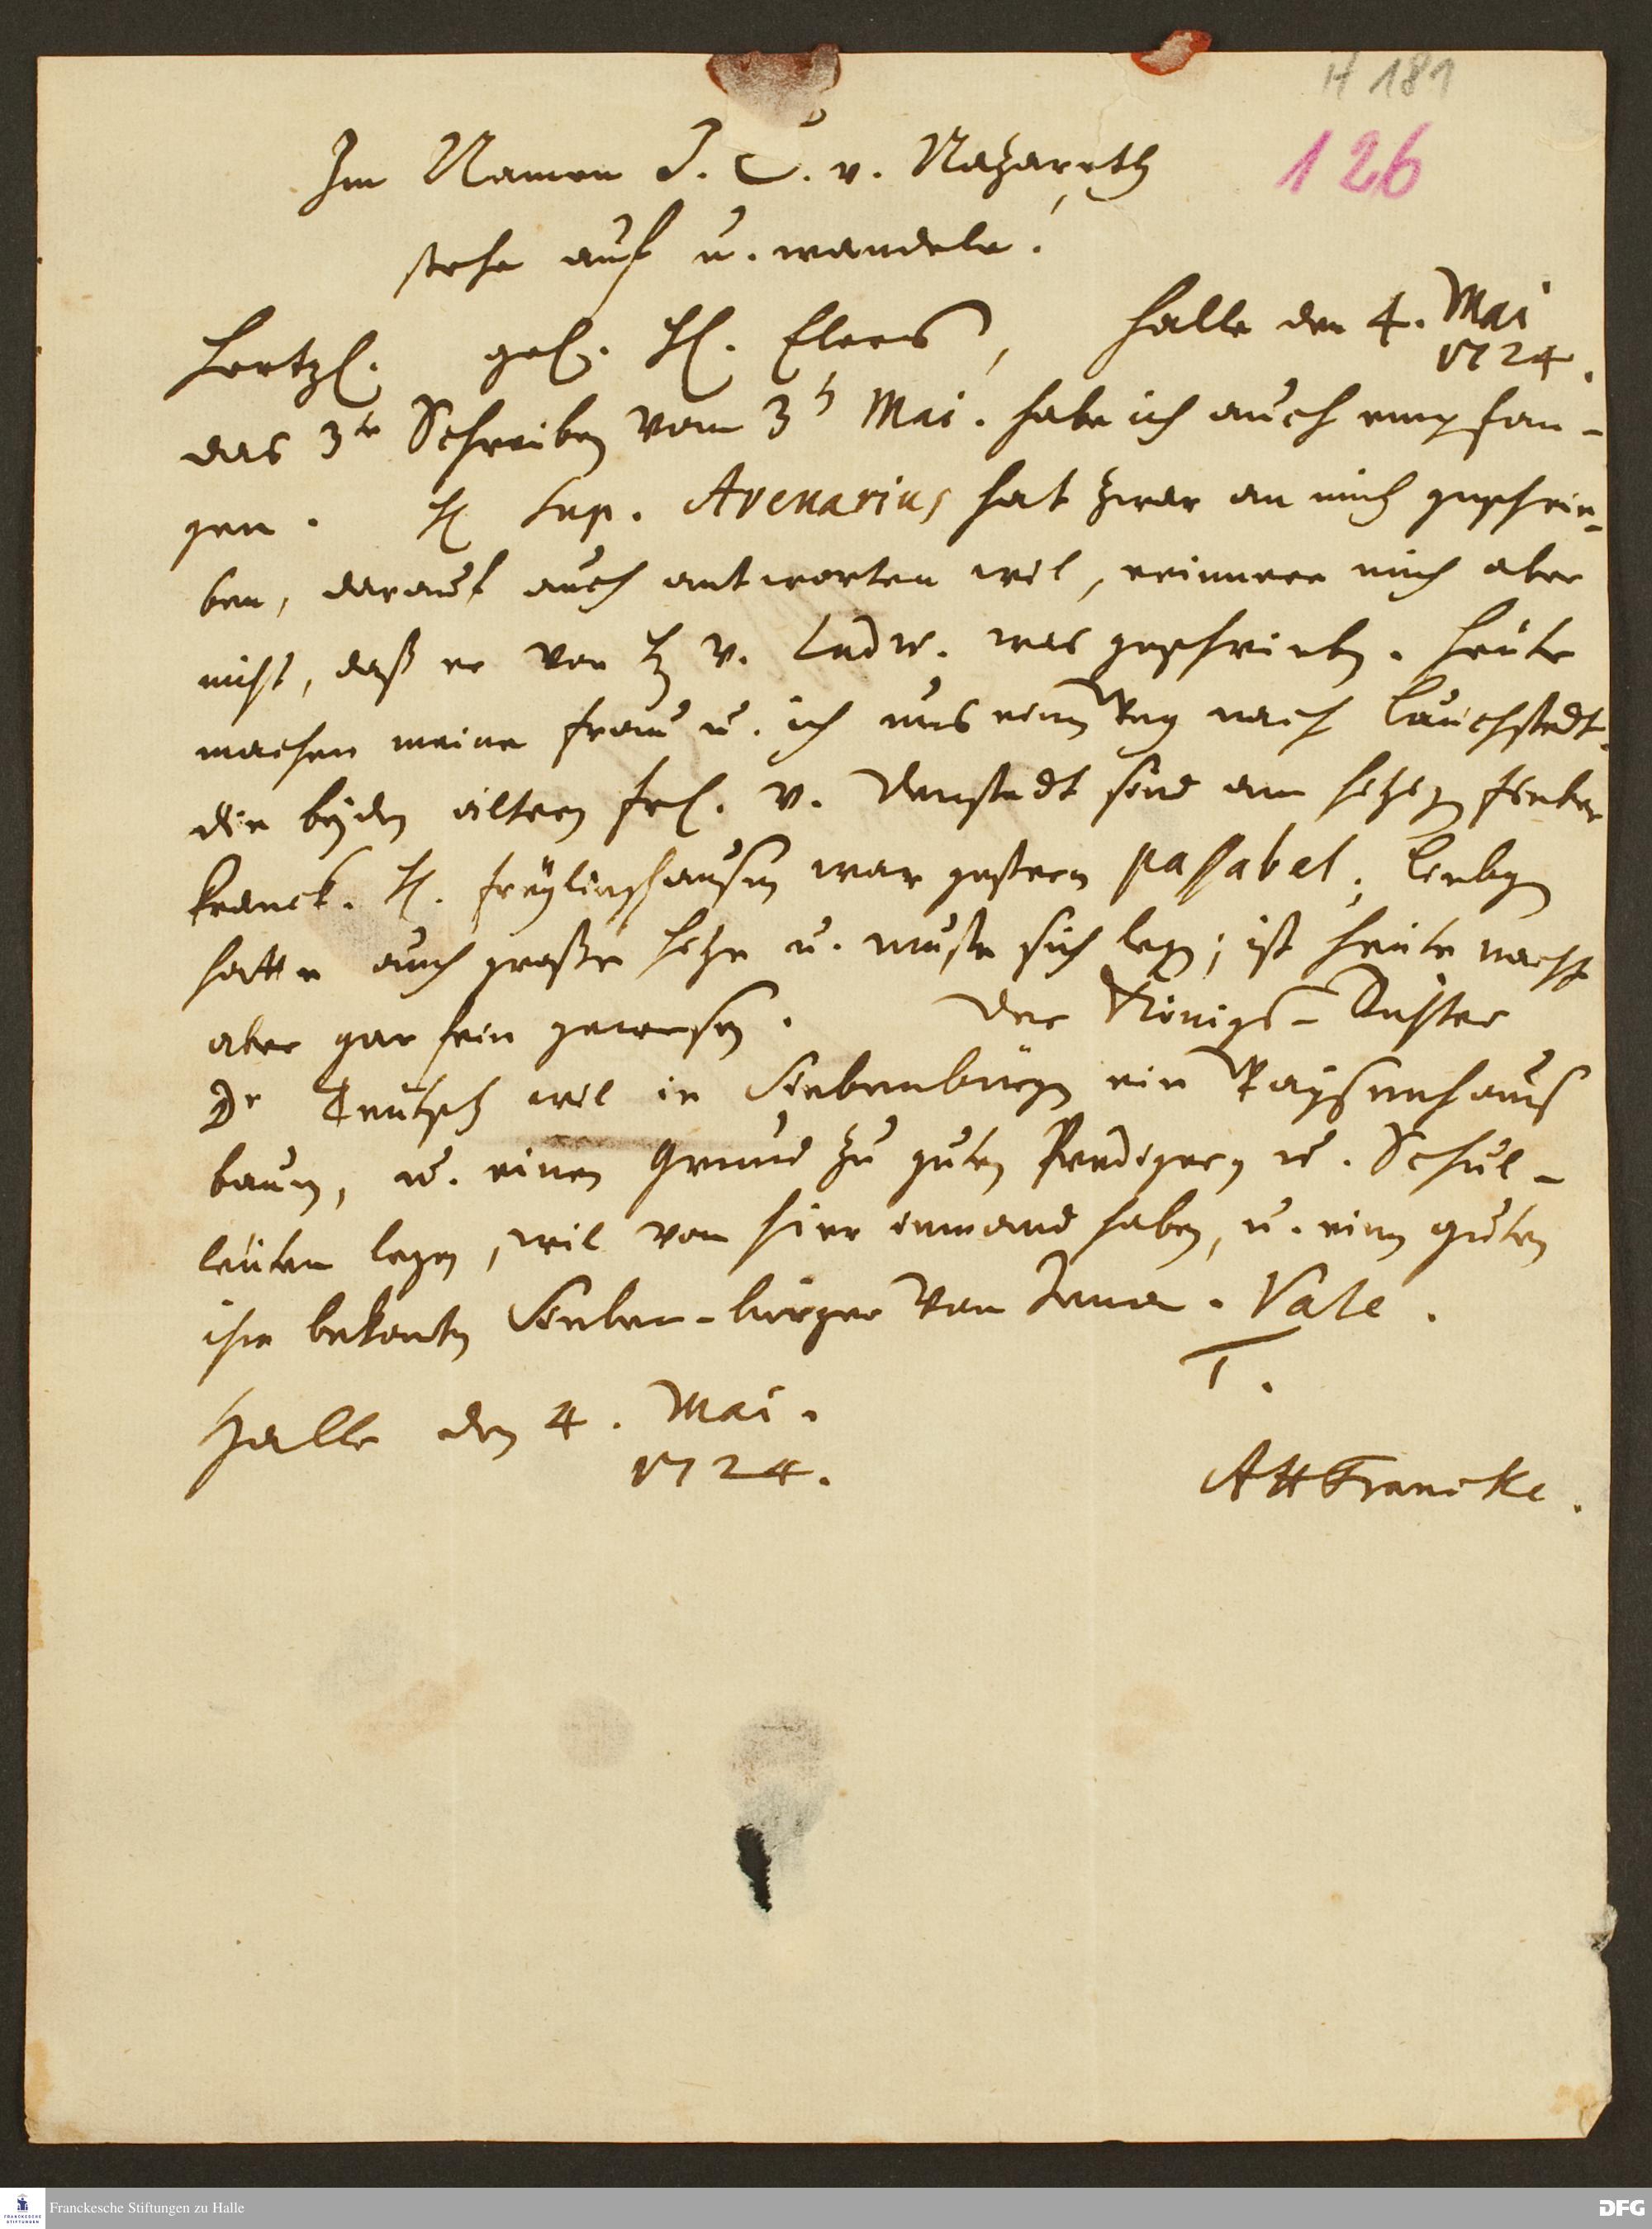 H 181
126
Im Namen J. C. v. Nazareth
stehe auf u. wandele!
Hertzl. gel. H. Elers, Halle den 4. Mai
1724.
das 3te Schreiben vom 3t Mai. habe ich auch empfan-
gen. H Sup. Avenarius hat zwar an mich geschrie-
ben, darauf auch antworten wil, erinnere mich aber
nicht, daß er von H v. Ludw. was geschrieben. Heute
machen meine Frau u. ich uns einen Weg nach Lauchstedt.
die beyden ältern Frl. v. Denstedt sind am hitzigen Fieber
kranck. H. Freylinghausen war gestern passabel;
hatte auch große Hitze u. muste sich legen; ist heute nacht
aber gar fein gewesen. Der Königs-Richter
Dr Teutsch wil in Siebenbürgen ein Waysenhaus
bauen, u. einen Grund zu guten Predigern u. Schul-
leuten legen, wil von hier iemand haben, u. einen guten
ihm bekanten Sieben-bürger von Jena. Vale.
T.
Halle den 4. Mai.
1724.
AHFrancke.
Franckesche Stiftungen zu Halle
DFG